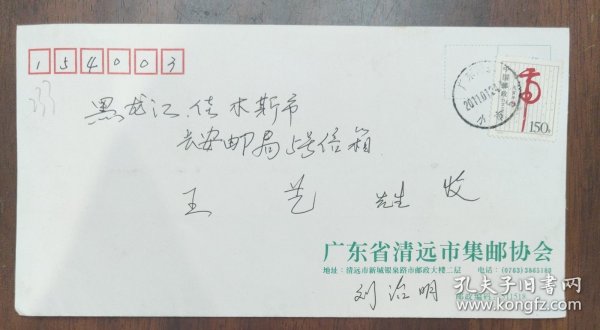 154003
黑龙江.佳木斯市
长安邮局5号信箱
王艺 先生 收
150分
2011.01.24
广东省清远市集邮协会
地址：清远市新城银泉路市邮政大楼二层 电话：(0763)3865180
刘治明
孔夫子旧书网
kongfz.com